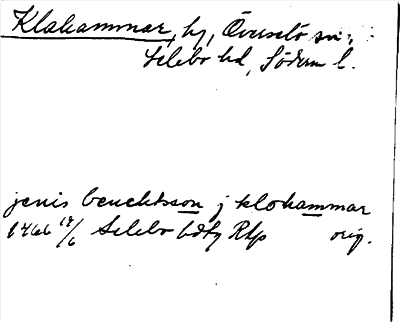 Klahammar, by, Överselö sn,
Selebo hd, Söderm l.
jenis benchtsson j klohammar
1466 18/6 Selebo hdtg Rtp orig.